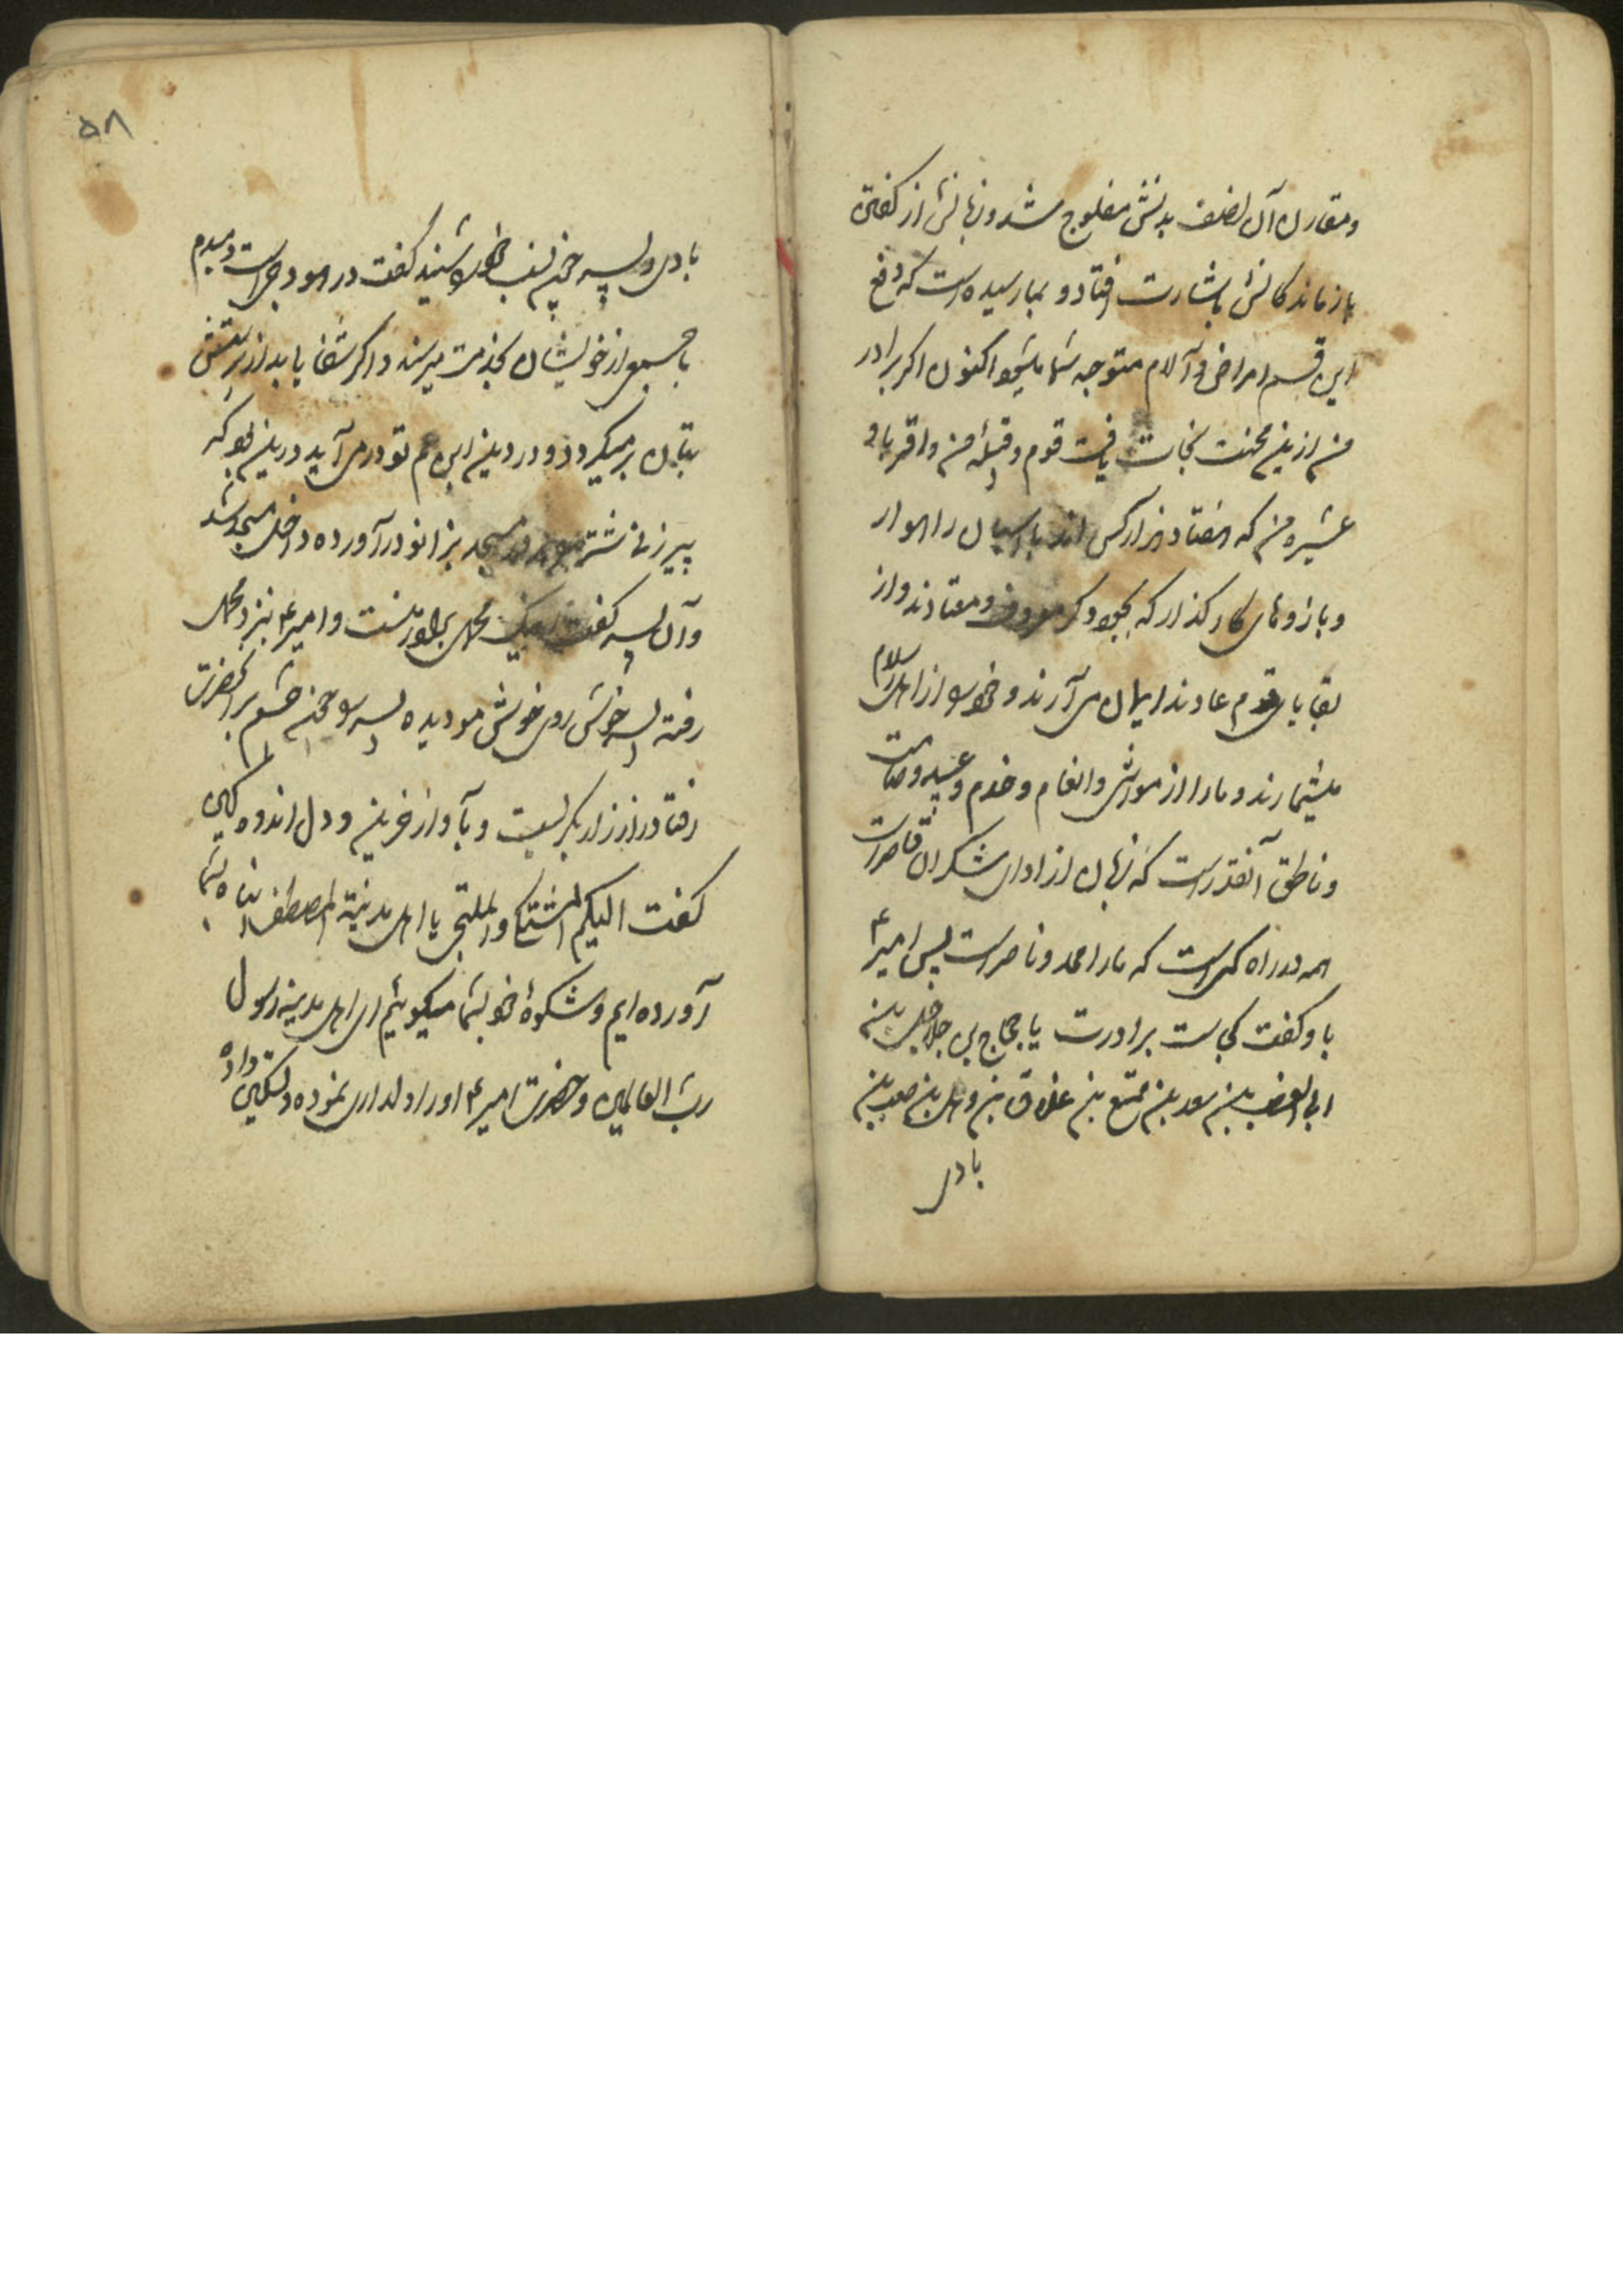 ومقارن آن نصف بدنش مفلوج شد و زبانش از گفتن
بازماند کارش باشارت افتاد و بما رسیده است که دفع
این قسم امراض و آلام متوجه شما میشود اکنون اگر برادر
من ازین محنت نجات یافت قوم و قبیله من و اقربا و
عشیره من که هفتاد هزار کس اند با اسبان راهوار
و بازوهای کارگذار که بجود و کرم معروف و معتادند و از
بقایای قوم عادند ایمان می آرند و خود را از اهل اسلام
میشمارند و ما را از مواشی و انعام و خدم و عبید و صامت
و ناطق آنقدر است که زبان از ادای شکر آن قاصر است
همه در راه کسی است که ما را ممد و ناصر است پس امیر ع
باو گفت کجاست برادرت یا عجاج بن حلاحل بن
ابی الغضب بن سعد بن ممتع بن عملاق بن وهل بن صعب بن
بادی
۵۸
بادی و پسر چون نسب خود را شنید گفت در هودج است و میدم
با جمعی از خویشان بخدمت میرسند و اگر شفا یابد از پرستش
بتان برمیگردد و در دین ابن عم تو در می آید درین بود که
پیرزنی شتر در مسجد بزانو درآورده داخل مسجد شد
و آن پسر گفت اینک محمل برادر منست و امیر ع بنزد محمل
رفته پسر خوش روی خوش مو دیده پسر چون چشم بر آنحضرت
افتاد زار زار بگریست و بآواز حزین و دل اندوهگین
گفت الیکم المشتکی و الملتجی یا اهل مدینة المصطفی پناه بشما
آورده ایم و شکوهٔ خود بشما میگوئیم ای اهل مدینه رسول
رب العالمین و حضرت امیر ع او را دلداری نموده و تسکین داده